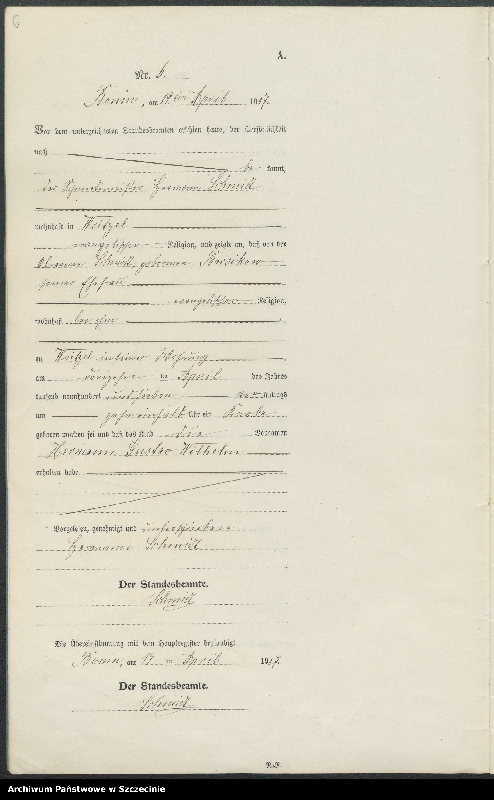 6
A.
Nr. 6.
am 19ten April 1907.
Vor dem unterzeichneten Standesbeamten erschien heute, der Persönlichkeit
nach
be kannt,
der Hermann Schmidt
wohnhaft in Woitzel
evangelischer Religion, und zeigte an, daß von der
Schmidt, geborenen
seiner Ehefrau
evangelischer Religion,
wohnhaft bei ihm
zu Woitzel in seiner Wohnung
am ten April des Jahres
tausend neunhundert und sieben mittags
um zehn einhalb Uhr ein Knabe
geboren worden sei und daß das Kind die Vornamen
Hermann Gustav Wilhelm
erhalten habe.
Vorgelesen, genehmigt und unterschrieben
Hermann Schmidt
Der Standesbeamte.
Schmidt
Die Übereinstimmung mit dem Hauptregister beglaubigt
am 19. April 1907.
Der Standesbeamte.
Schmidt
Archiwum Państwowe w Szczecinie